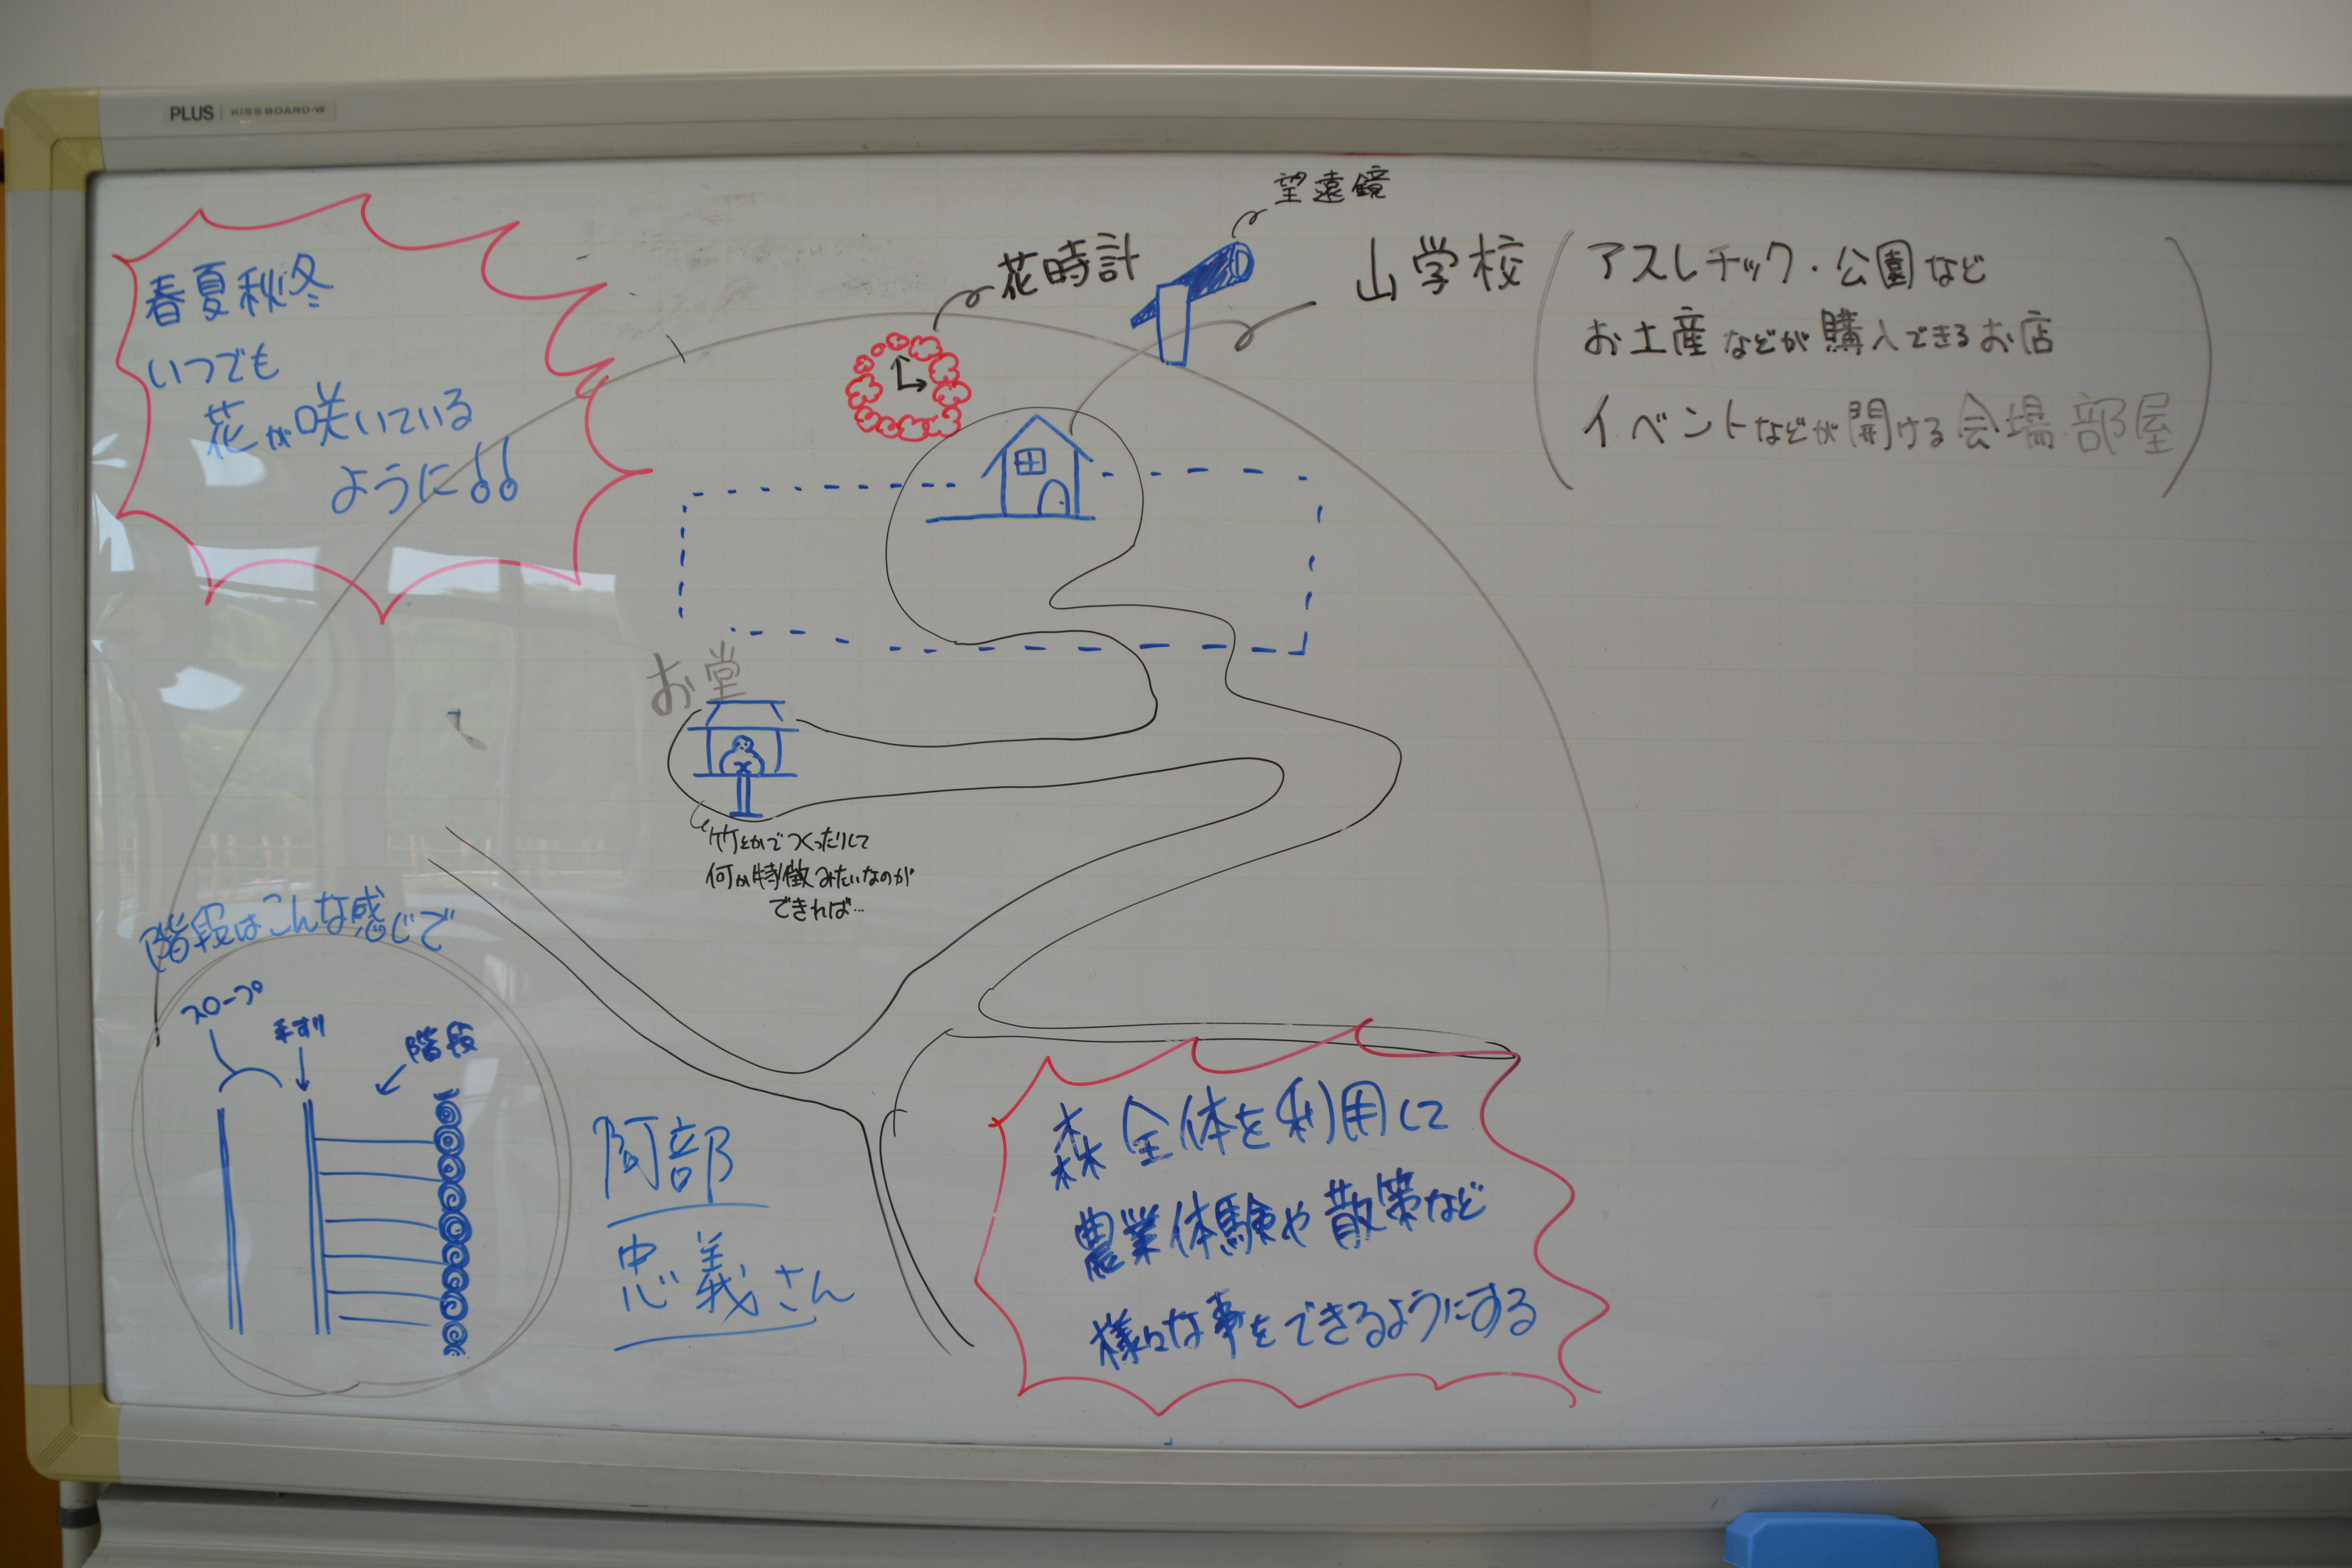 PLUS KISSBOARD・W
春夏秋冬
いつでも
花が咲いている
ように!!
花時計
望遠鏡
山学校
アスレチック・公園など
お土産などが購入できるお店
イベントなどが開ける会場部屋
お堂
竹とかでつくったりして
何か特徴みたいなのが
できれば…
階段はこんな感じで
スロープ
手すり
階段
阿部
忠義さん
森全体を利用して
農業体験や散策など
様々な事をできるようにする